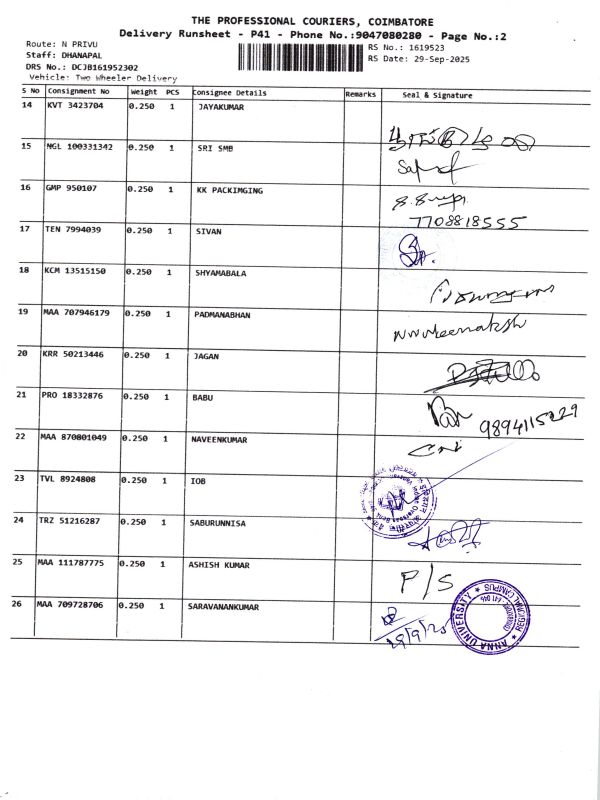 THE PROFESSIONAL COURIERS, COIMBATORE
Delivery Runsheet - P41 - Phone No.:9047080280 - Page No.:2
Route: N PRIVU
RS No.: 1619523
Staff: DHANAPAL
RS Date: 29-Sep-2025
DRS No.: DCJB161952302
Vehicle: Two Wheeler Delivery
S No Consignment No Weight PCS Consignee Details Remarks Seal & Signature
14 KVT 3423704 0.250 1 JAYAKUMAR
15 NGL 100331342 0.250 1 SRI SMB
16 GMP 950107 0.250 1 KK PACKIMGING
7708818555
17 TEN 7994039 0.250 1 SIVAN
18 KCM 13515150 0.250 1 SHYAMABALA
19 MAA 707946179 0.250 1 PADMANABHAN
20 KRR 50213446 0.250 1 JAGAN
21 PRO 18332876 0.250 1 BABU
22 MAA 870801049 0.250 1 NAVEENKUMAR
23 TVL 8924808 0.250 1 IOB
24 TRZ 51216287 0.250 1 SABURUNNISA
25 MAA 111787775 0.250 1 ASHISH KUMAR
P/S
26 MAA 709728706 0.250 1 SARAVANANKUMAR
29/9/25
ANNA UNIVERSITY ★ REGIONAL CAMPUS ★